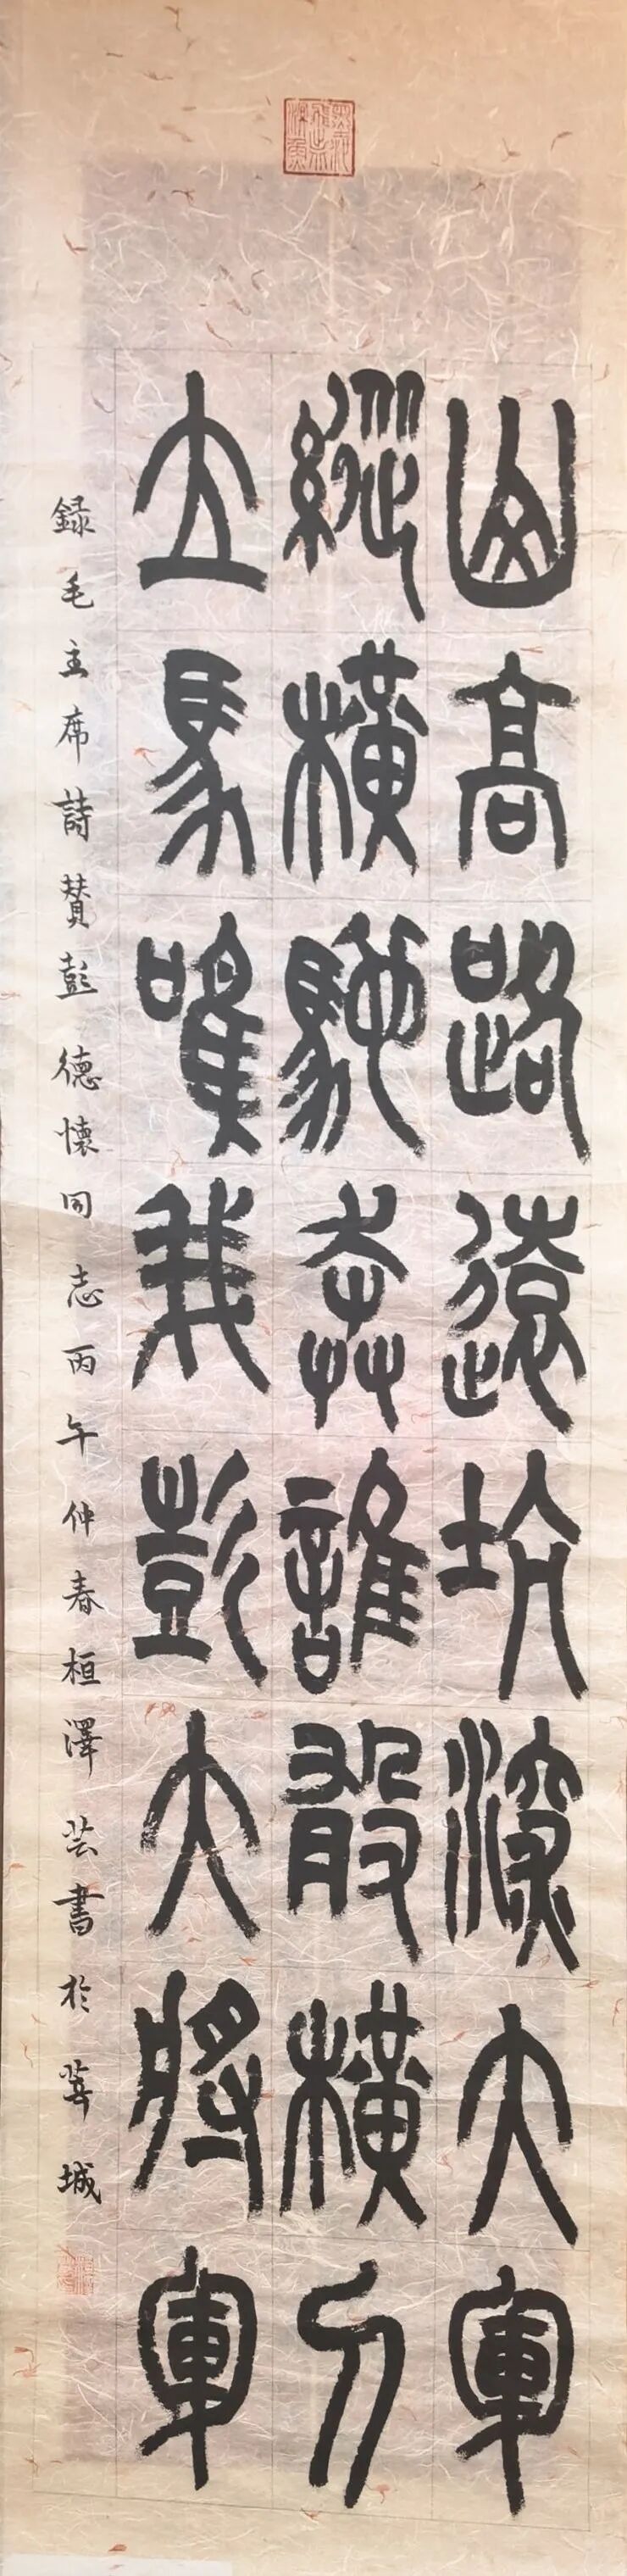 山高路遠坑深大軍
縱橫馳奔誰敢橫刀
立馬唯我彭大將軍
録毛主席詩賛彭德懷同志丙午仲春桓澤芸書於城